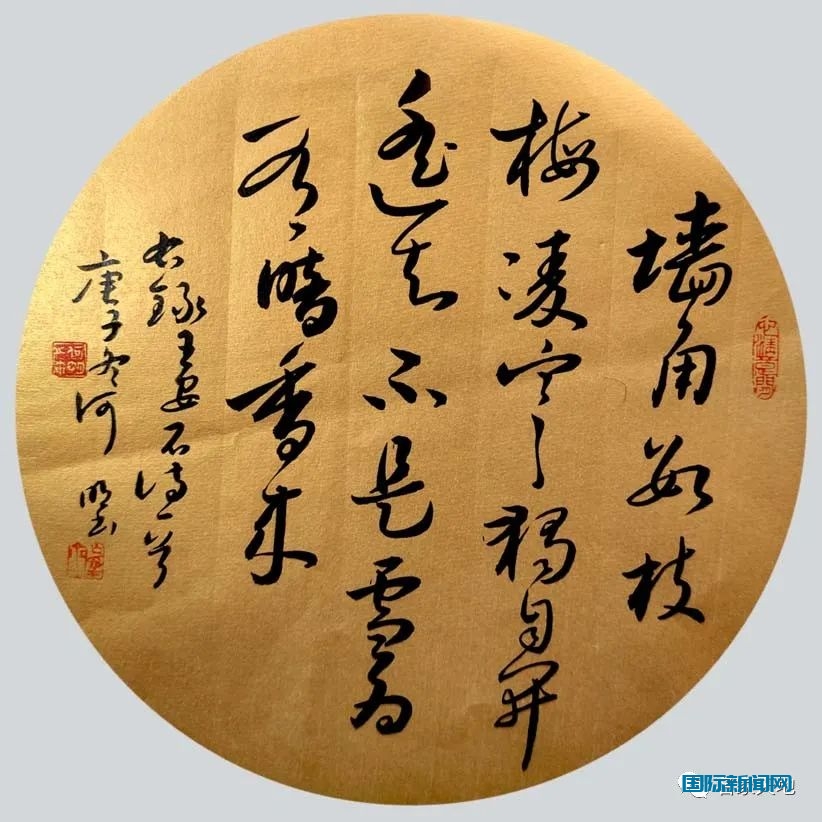 墙角数枝
梅凌寒独自开
遥知不是雪为
有暗香来
书录王安石诗一首
庚子冬何明书
国际新闻网